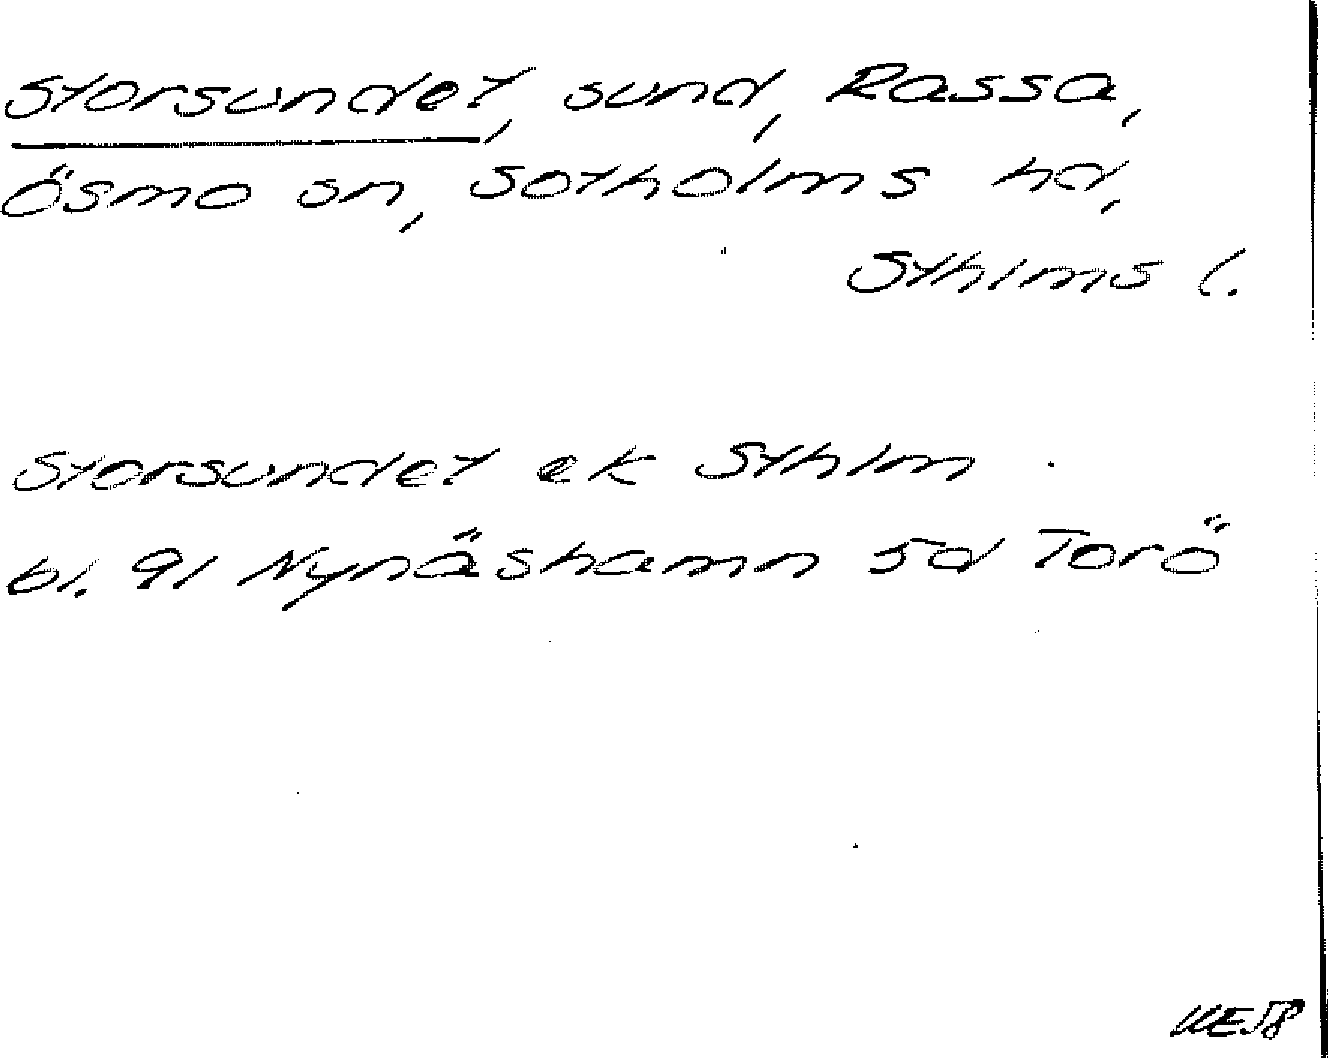 Storsundet, sund, Rassa,
Ösmo sn, Sotholms hd,
Sthlms l.
Storsundet ek Sthlm
bl. 91 Nynäshamn 5d Torö